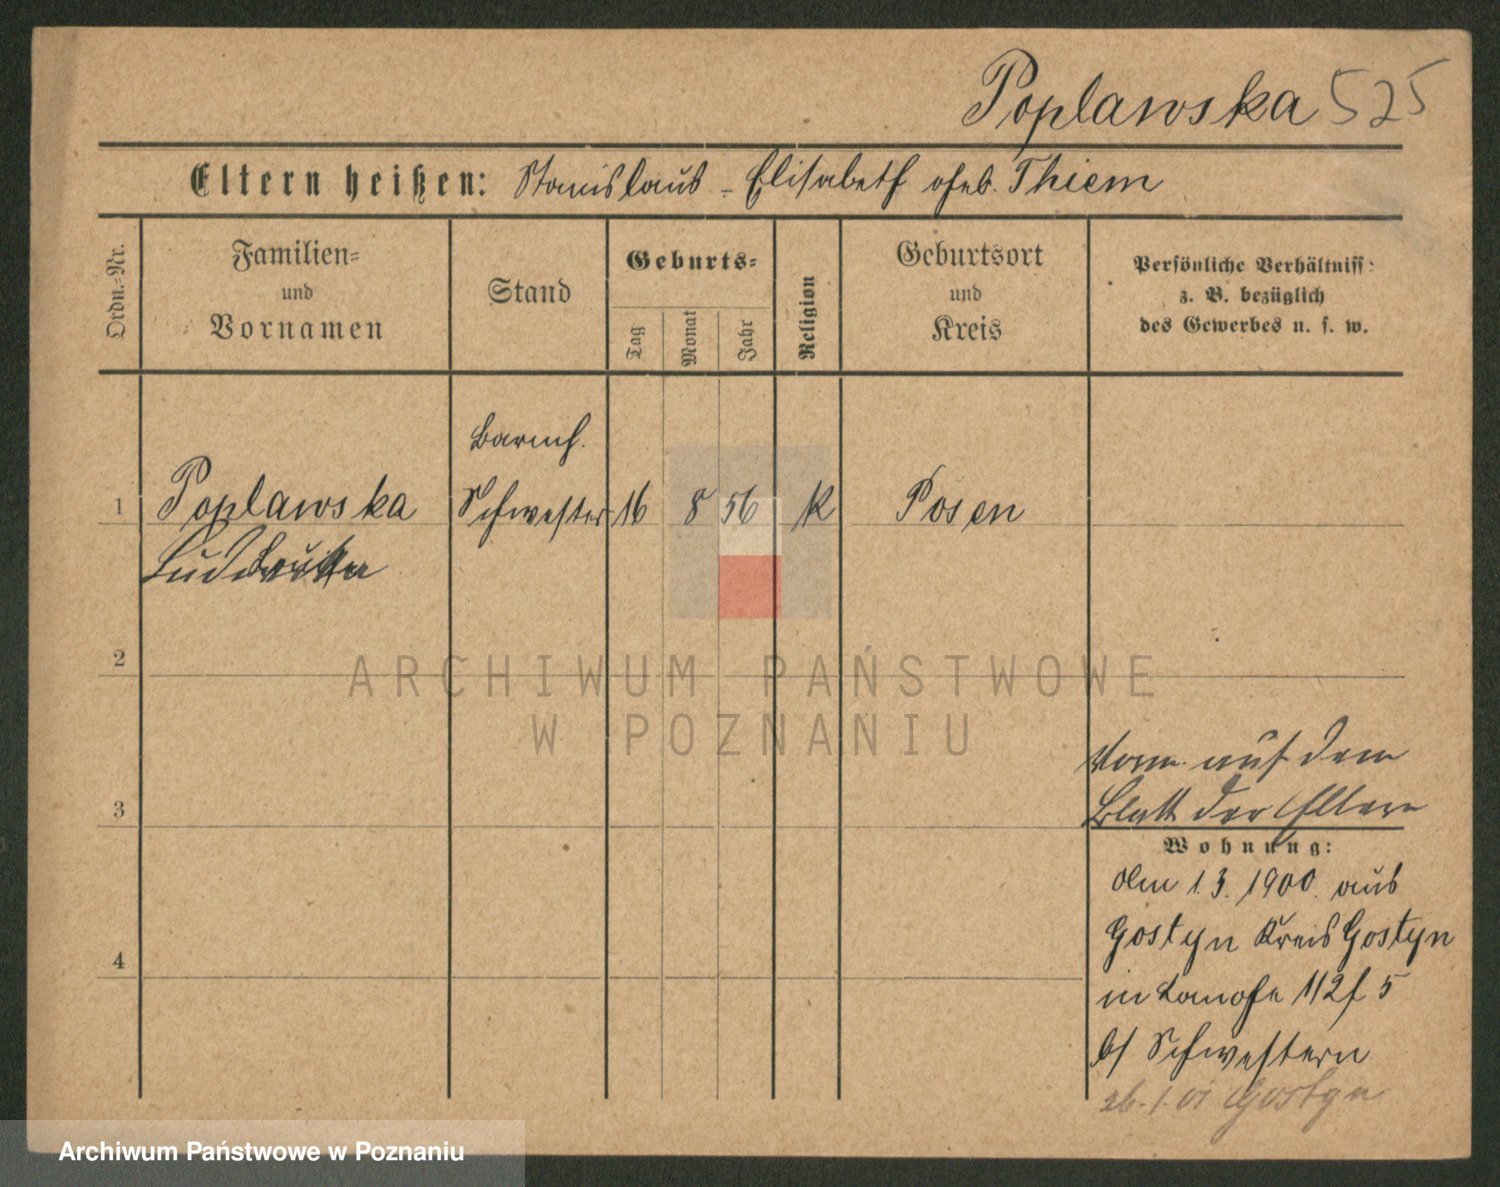 Poplawska 525
Eltern heißen: Stanislaus - Elisabeth geb. Thiem
Ordn.-Nr.
Familien-
und
Vornamen
Stand
Geburts-
Tag
Monat
Jahr
Religion
Geburtsort
und
Kreis
Persönliche Verhältniss
z. B. bezüglich
des Gewerbes u. s. w.
Barmh.
1 Poplawska Schwester 16 8 56 K Posen
2
ARCHIWUM PAŃSTWOWE
W POZNANIU
auf dem
3 Blatt der Eltern
Wohnung:
1.3.1900. aus
Gostyn Kreis Gostyn
4
in 112 5
b/ Schwestern
26.1.01 Gostyn
Archiwum Państwowe w Poznaniu